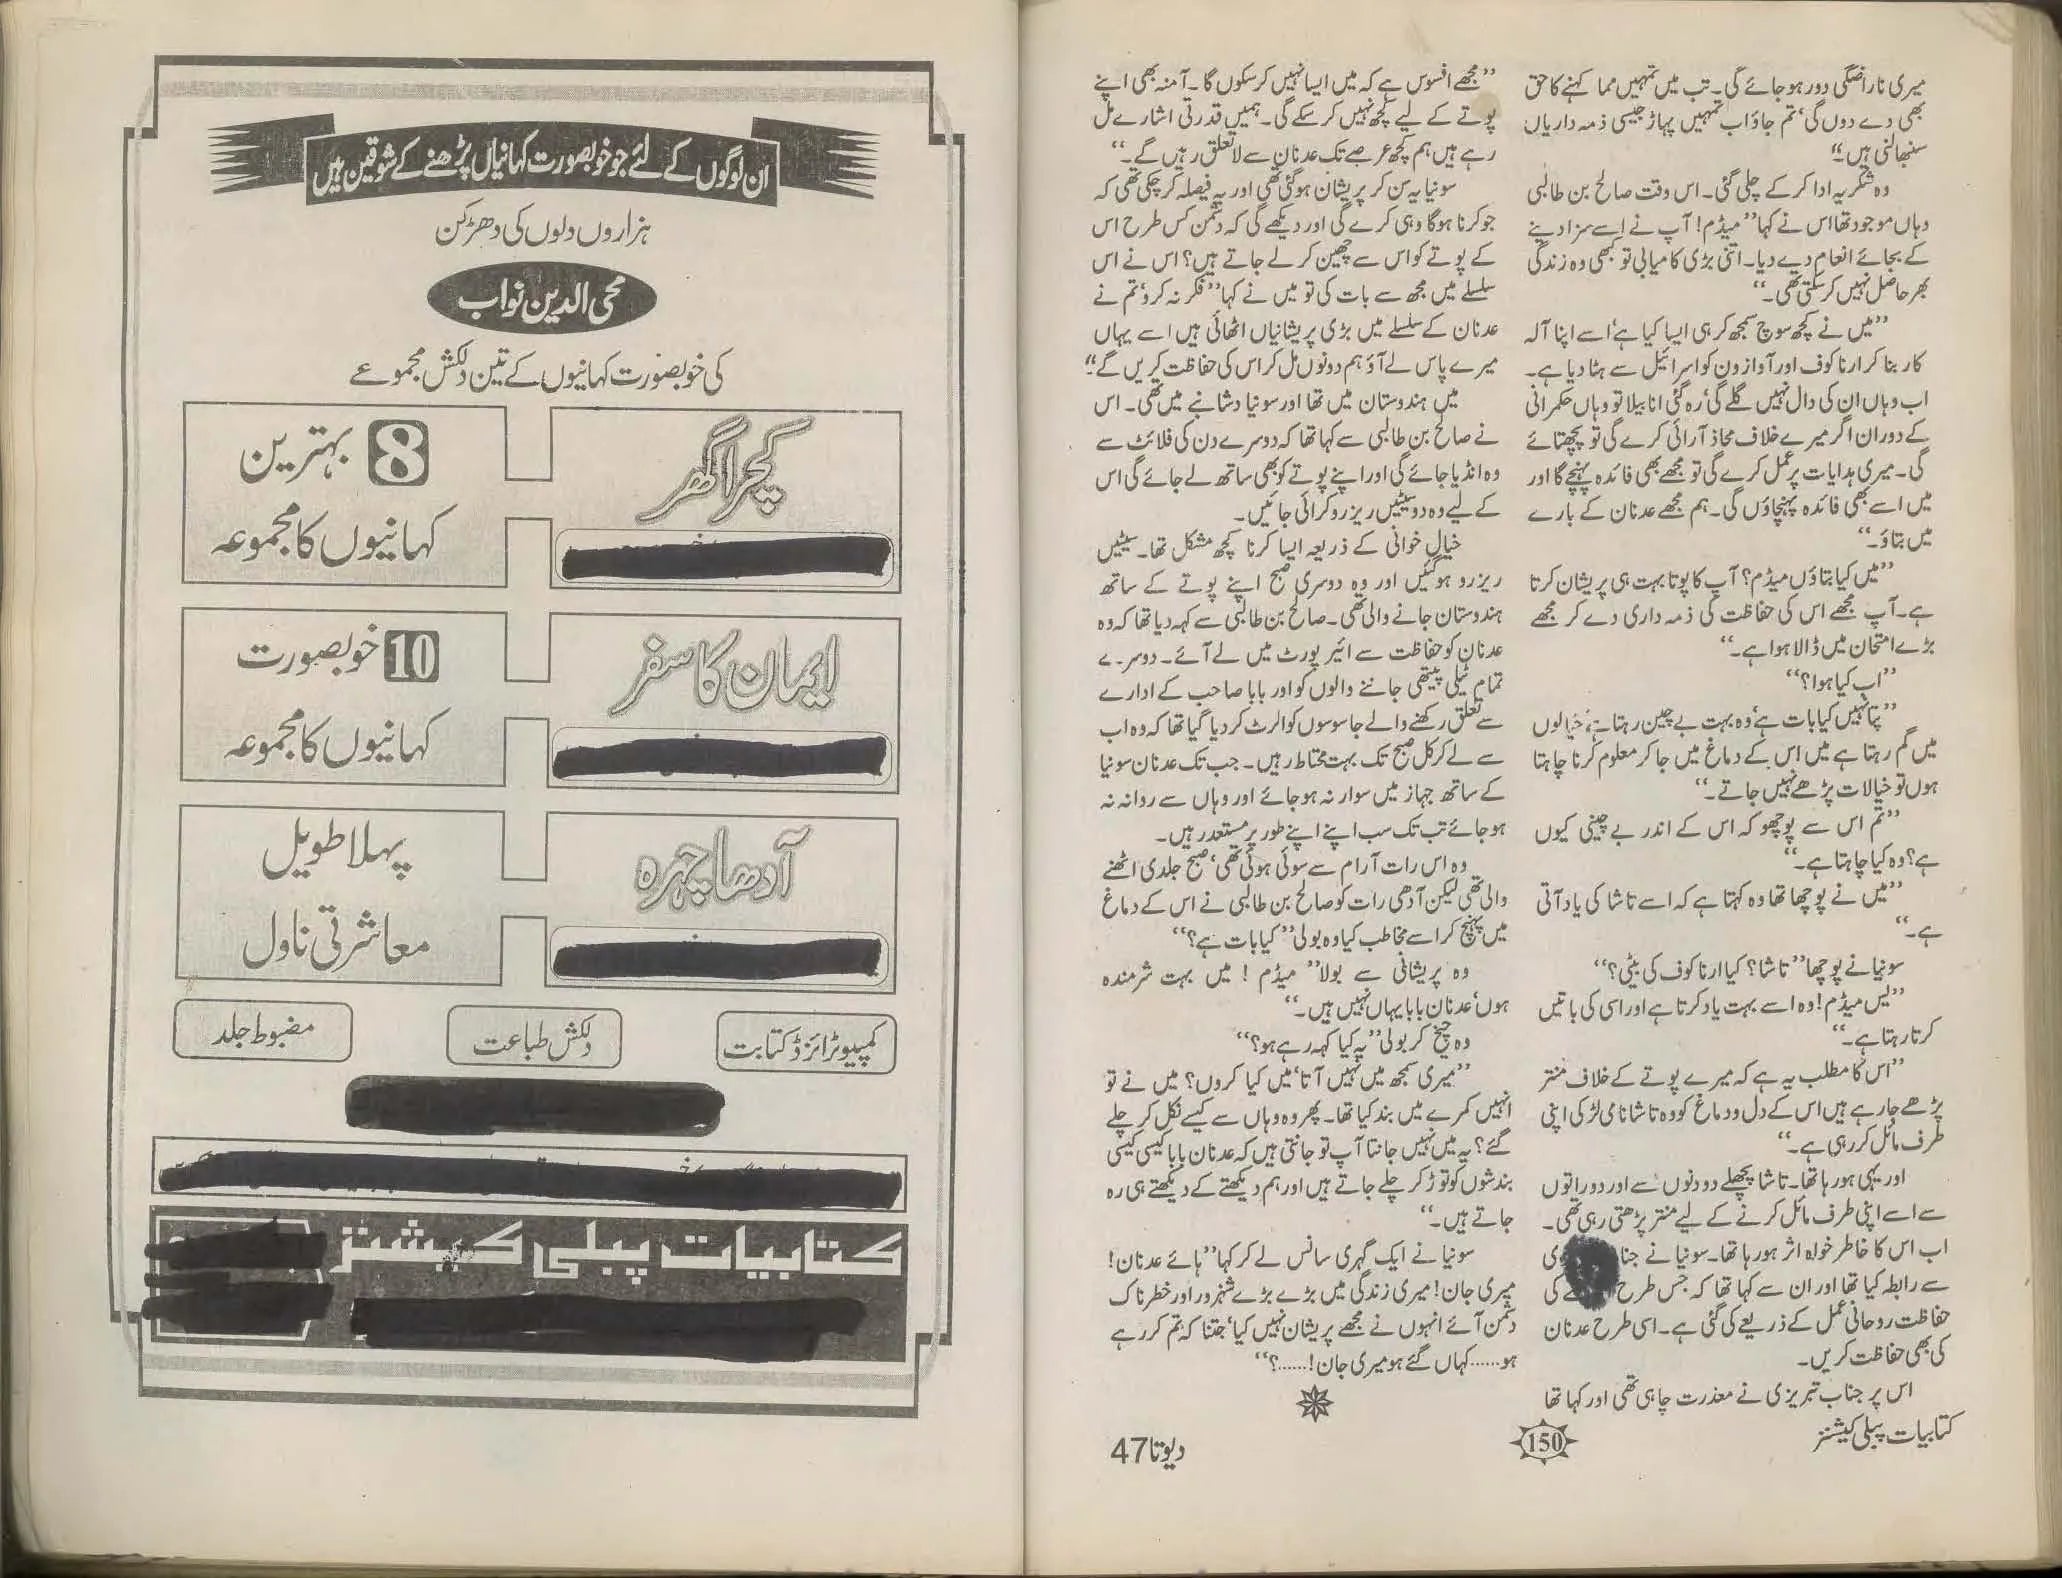 میری ناراضگی دور ہو جائے گی۔ تب میں تمہیں مما کہنے کا حق
بھی دے دوں گی، تم جاؤ اب تمہیں پہاڑ جیسی ذمہ داریاں
سنبھالنی ہیں۔"
وہ شکریہ ادا کر کے چلی گئی۔ اس وقت صالح بن طالبی
وہاں موجود تھا اس نے کہا "میڈم! آپ نے اسے سزا دینے
کے بجائے انعام دے دیا۔ اتنی بڑی کامیابی تو کبھی وہ زندگی
بھر حاصل نہیں کر سکتی تھی۔"
"میں نے کچھ سوچ سمجھ کر ہی ایسا کیا ہے، اسے اپنا آلہ
کار بنا کر ارنا کوف اور آوازون کو اسرائیل سے ہٹا دیا ہے۔
اب وہاں ان کی دال نہیں گلے گی، رہ گئی انابیلا تو وہاں حکمرانی
کے دوران اگر میرے خلاف محاذ آرائی کرے گی تو پچھتائے
گی۔ میری ہدایات پر عمل کرے گی تو مجھے بھی فائدہ پہنچے گا اور
میں اسے بھی فائدہ پہنچاؤں گی۔ ہم مجھے عدنان کے بارے
میں بتاؤ۔"
"میں کیا بتاؤں میڈم؟ آپ کا پوتا بہت ہی پریشان کرتا
ہے۔ آپ مجھے اس کی حفاظت کی ذمہ داری دے کر مجھے
بڑے امتحان میں ڈالا ہوا ہے۔"
"اب کیا ہوا؟"
"پتا نہیں کیا بات ہے، وہ بہت بے چین رہتا ہے، خیالوں
میں گم رہتا ہے میں اس کے دماغ میں جا کر معلوم کرنا چاہتا
ہوں تو خیالات پڑھے نہیں جاتے۔"
"تم اس سے پوچھو کہ اس کے اندر بے چینی کیوں
ہے؟ وہ کیا چاہتا ہے۔"
"میں نے پوچھا تھا وہ کہتا ہے کہ اسے تاشا کی یاد آتی
ہے۔"
سونیا نے پوچھا "تاشا؟ کیا ارنا کوف کی بیٹی؟"
"یس میڈم! وہ اسے بہت یاد کرتا ہے اور اسی کی باتیں
کرتا رہتا ہے۔"
"اس کا مطلب یہ ہے کہ میرے پوتے کے خلاف منتر
پڑھے جا رہے ہیں اس کے دل و دماغ کو وہ تاشا نامی لڑکی اپنی
طرف مائل کر رہی ہے۔"
اور یہی ہو رہا تھا۔ تاشا پچھلے دو دنوں سے اور دو راتوں
سے اسے اپنی طرف مائل کرنے کے لیے منتر پڑھتی رہی تھی۔
اب اس کا خاطر خواہ اثر ہو رہا تھا۔ سونیا نے جناب
سے رابطہ کیا تھا اور ان سے کہا تھا کہ جس طرح کی
حفاظت روحانی عمل کے ذریعے کی گئی ہے۔ اسی طرح عدنان
کی بھی حفاظت کریں۔
اس پر جناب تبریزی نے معذرت چاہی تھی اور کہا تھا
"مجھے افسوس ہے کہ میں ایسا نہیں کر سکوں گا۔ آمنہ بھی اپنے
پوتے کے لیے کچھ نہیں کر سکے گی۔ ہمیں قدرتی اشارے مل
رہے ہیں ہم کچھ عرصے تک عدنان سے لا تعلق رہیں گے۔"
سونیا یہ سن کر پریشان ہو گئی تھی اور یہ فیصلہ کر چکی تھی کہ
جو کرنا ہوگا وہی کرے گی اور دیکھے گی کہ دشمن کس طرح اس
کے پوتے کو اس سے چھین کر لے جاتے ہیں؟ اس نے اس
سلسلے میں مجھ سے بات کی تو میں نے کہا "فکر نہ کرو، تم نے
عدنان کے سلسلے میں بڑی پریشانیاں اٹھائی ہیں اسے یہاں
میرے پاس لے آؤ ہم دونوں مل کر اس کی حفاظت کریں گے۔"
میں ہندوستان میں تھا اور سونیا دشانبے میں تھی۔ اس
نے صالح بن طالبی سے کہا تھا کہ دوسرے دن کی فلائٹ سے
وہ انڈیا جائے گی اور اپنے پوتے کو بھی ساتھ لے جائے گی اس
کے لیے وہ دو سیٹیں ریزرو کرائی جائیں۔
خیال خوانی کے ذریعہ ایسا کرنا کچھ مشکل تھا۔ سیٹیں
ریزرو ہو گئیں اور وہ دوسری صبح اپنے پوتے کے ساتھ
ہندوستان جانے والی تھی۔ صالح بن طالبی سے کہہ دیا تھا کہ وہ
عدنان کو حفاظت سے ائیر پورٹ میں لے آئے۔ دوسرے
تمام ٹیلی پیتھی جاننے والوں کو اور بابا صاحب کے ادارے
سے تعلق رکھنے والے جاسوسوں کو الرٹ کر دیا گیا تھا کہ وہ اب
سے لے کر کل صبح تک بہت محتاط رہیں۔ جب تک عدنان سونیا
کے ساتھ جہاز میں سوار نہ ہو جائے اور وہاں سے روانہ نہ
ہو جائے تب تک سب اپنے اپنے طور پر مستعد رہیں۔
وہ اس رات آرام سے سوئی ہوئی تھی، صبح جلدی اٹھنے
والی تھی لیکن آدھی رات کو صالح بن طالبی نے اس کے دماغ
میں پہنچ کر اسے مخاطب کیا وہ بولی "کیا بات ہے؟"
وہ پریشانی سے بولا "میڈم! میں بہت شرمندہ
ہوں، عدنان بابا یہاں نہیں ہیں۔"
وہ چیخ کر بولی "یہ کیا کہہ رہے ہو؟"
"میری سمجھ میں نہیں آتا، میں کیا کروں؟ میں نے تو
انہیں کمرے میں بند کیا تھا۔ پھر وہ وہاں سے کیسے نکل کر چلے
گئے؟ یہ میں نہیں جانتا آپ تو جانتی ہیں کہ عدنان بابا کیسی کیسی
بندشوں کو توڑ کر چلے جاتے ہیں اور ہم دیکھتے کے دیکھتے ہی رہ
جاتے ہیں۔"
سونیا نے ایک گہری سانس لے کر کہا "ہائے عدنان!
میری جان! میری زندگی میں بڑے بڑے شہزور اور خطرناک
دشمن آئے انہوں نے مجھے پریشان نہیں کیا، جتنا کہ تم کر رہے
ہو...... کہاں گئے ہو میری جان!......؟"
کتابیات پبلی کیشنز
150
دیوتا 47
ان لوگوں کے لئے جو خوبصورت کہانیاں پڑھنے کے شوقین ہیں
ہزاروں دلوں کی دھڑکن
محی الدین نواب
کی خوبصورت کہانیوں کے تین دلکش مجموعے
کچرا گھر
8 بہترین
کہانیوں کا مجموعہ
ایمان کا سفر
10 خوبصورت
کہانیوں کا مجموعہ
آدھا چہرہ
پہلا طویل
معاشرتی ناول
کمپیوٹرائزڈ کتابت
دلکش طباعت
مضبوط جلد
کتابیات پبلی کیشنز